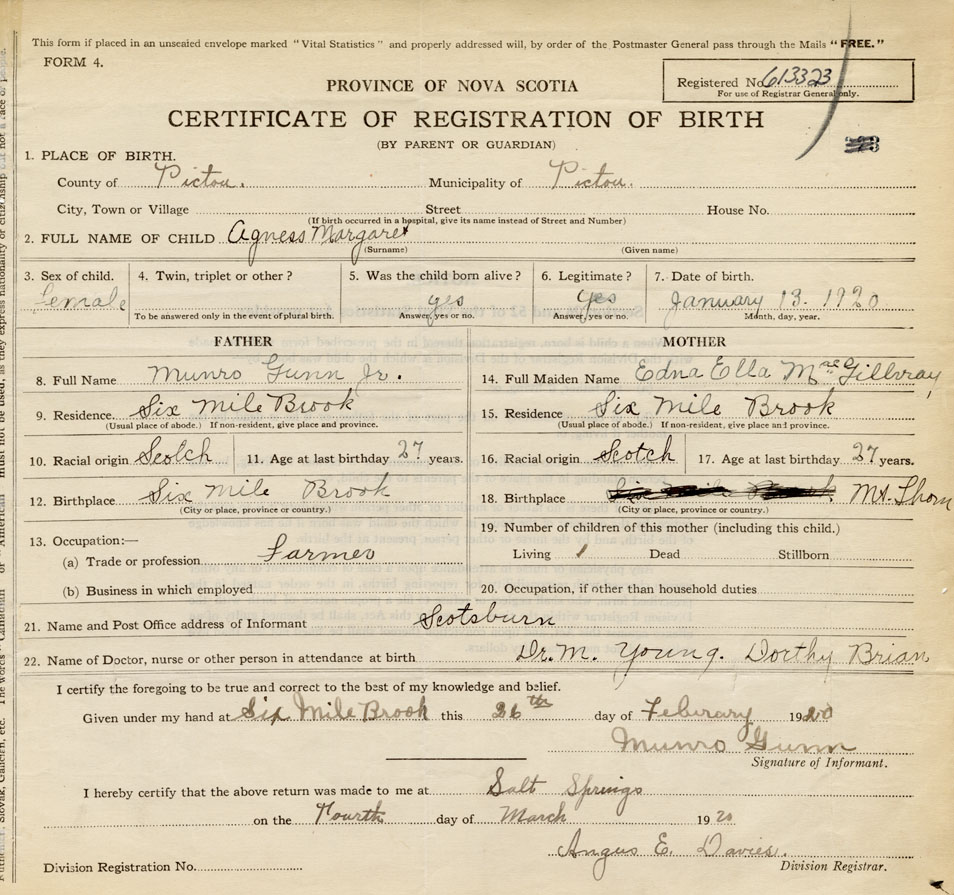 This form if placed in an unsealed envelope marked "Vital Statistics" and properly addressed will, by order of the Postmaster General pass through the Mails "FREE."
FORM 4.
Registered No. 613323
For use of Registrar General only.
PROVINCE OF NOVA SCOTIA
CERTIFICATE OF REGISTRATION OF BIRTH
(BY PARENT OR GUARDIAN)
1. PLACE OF BIRTH.
County of Pictou. Municipality of Pictou.
City, Town or Village Street House No.
(If birth occurred in a hospital, give its name instead of Street and Number)
2. FULL NAME OF CHILD Agness Margaret
(Surname) (Given name)
3. Sex of child. 4. Twin, triplet or other? 5. Was the child born alive? 6. Legitimate? 7. Date of birth.
Female yes yes January 13. 1920
To be answered only in the event of plural birth. Answer, yes or no. Answer, yes or no. Month, day, year.
FATHER MOTHER
8. Full Name Munro Gunn Jr. 14. Full Maiden Name Edna Ella MacGillvray
9. Residence. Six Mile Brook 15. Residence Six Mile Brook
(Usual place of abode.) If non-resident, give place and province. (Usual place of abode.) If non-resident, give place and province.
10. Racial origin Scotch 11. Age at last birthday 27 years. 16. Racial origin Scotch 17. Age at last birthday 27 years.
12. Birthplace Six Mile Brook 18. Birthplace Six Mile Brook Mt. Thom
(City or place, province or country.) (City or place, province or country.)
19. Number of children of this mother (including this child.)
13. Occupation:—
(a) Trade or profession Farmer Living 1 Dead Stillborn
(b) Business in which employed 20. Occupation, if other than household duties
21. Name and Post Office address of Informant Scotsburn
22. Name of Doctor, nurse or other person in attendance at birth Dr. M. Young. Dorthy Brian
I certify the foregoing to be true and correct to the best of my knowledge and belief.
Given under my hand at Six Mile Brook this 26th day of Febirary 1920
Munro Gunn
Signature of Informant.
I hereby certify that the above return was made to me at Salt Springs
on the Fourth day of March 1920
Angus E. Davies.
Division Registration No. Division Registrar.